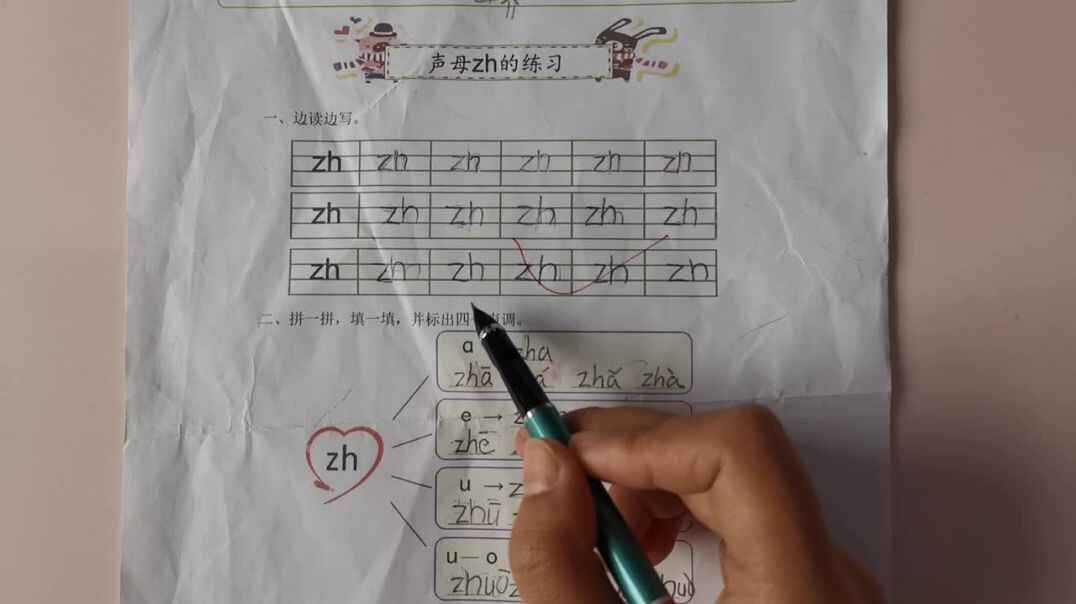 声母zh的练习
一、边读边写。
zh zh zh zh zh zh
zh zh zh zh zh zh
zh zh zh zh zh zh
二、拼一拼，填一填，并标出四 调。
a zha
zhā zhǎ zhà
e →
zhē
zh
u →
zhū
u— o
zhuō